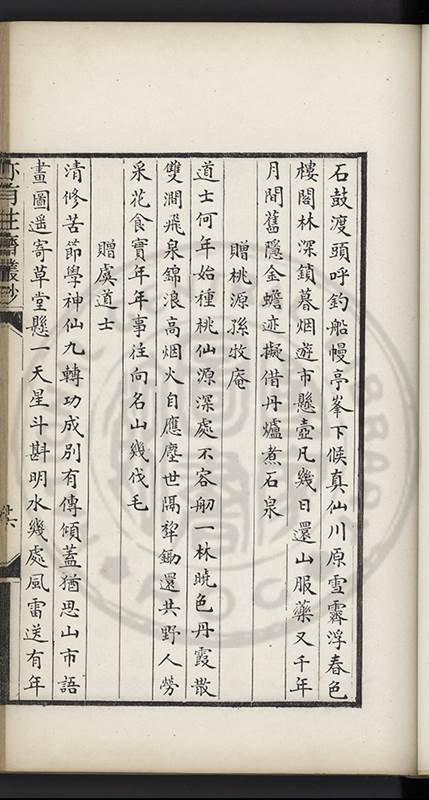 石鼓渡頭呼釣船幔亭峯下候真仙川原雪霽浮春色
樓閣林深鎖暮烟遊市懸壺凡幾日還山服藥又千年
月間舊隱金蟾迹擬借丹爐煮石泉
贈桃源孫牧庵
道士何年始種桃仙源深處不容舠一林曉色丹霞散
雙澗飛泉錦浪高烟火自應塵世隔犂鋤還共野人勞
采花食實年年事往向名山幾伐毛
贈虞道士
清修苦節學神仙九轉功成別有傳傾蓋猶思山市語
畫圖遥寄草堂懸一天星斗斟明水幾處風雷送有年